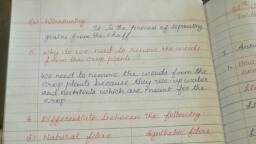 Winnowing
It is the process of separating
grains from the chaff.
Why do we need to remove the weeds
from the crop plants?
We need to remove the weeds from the
crop plants because they use up water
and nutrients which are meant for the
crop
Differentiate between the following
Natural fibre Synthetic fibre